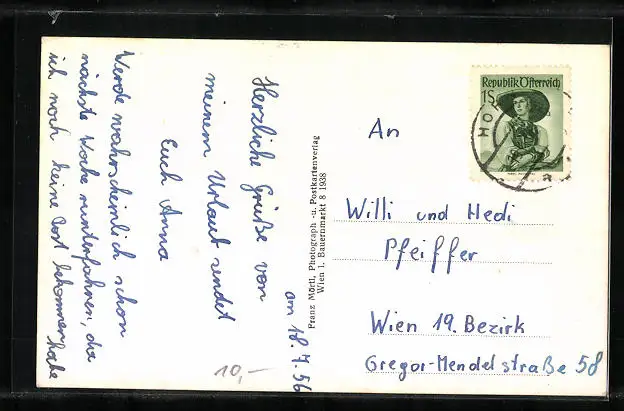 am 18.7.56
Herzliche Grüße von
meinem Urlaub sendet
Euch Anna
Werde wahrscheinlich schon
nächste Woche runterfahren, da
ich noch keine Post bekommen habe
10,-
Franz Mörtl, Photograph -u. Postkartenverlag
Wien 1. Bauernmarkt 8 1938
Republik Österreich
1S
HOF
An
Willi und Hedi
Pfeiffer
Wien 19. Bezirk
Gregor-Mendelstraße 58